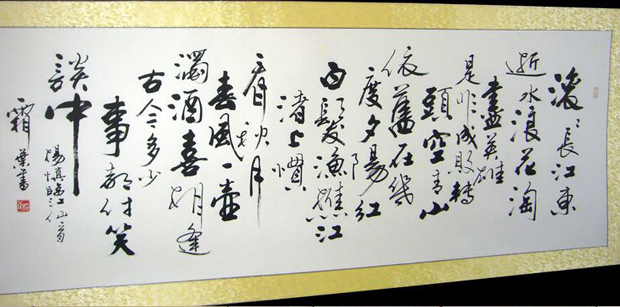 滚滚長江東
逝水浪花淘
盡英雄
是非成敗轉
頭空青山
依舊在幾
度夕陽紅
白髮漁樵江
渚上慣
看秋月
春風一壺
濁酒喜相逢
古今多少
事都付笑
談中
楊慎臨江仙
霜葉書